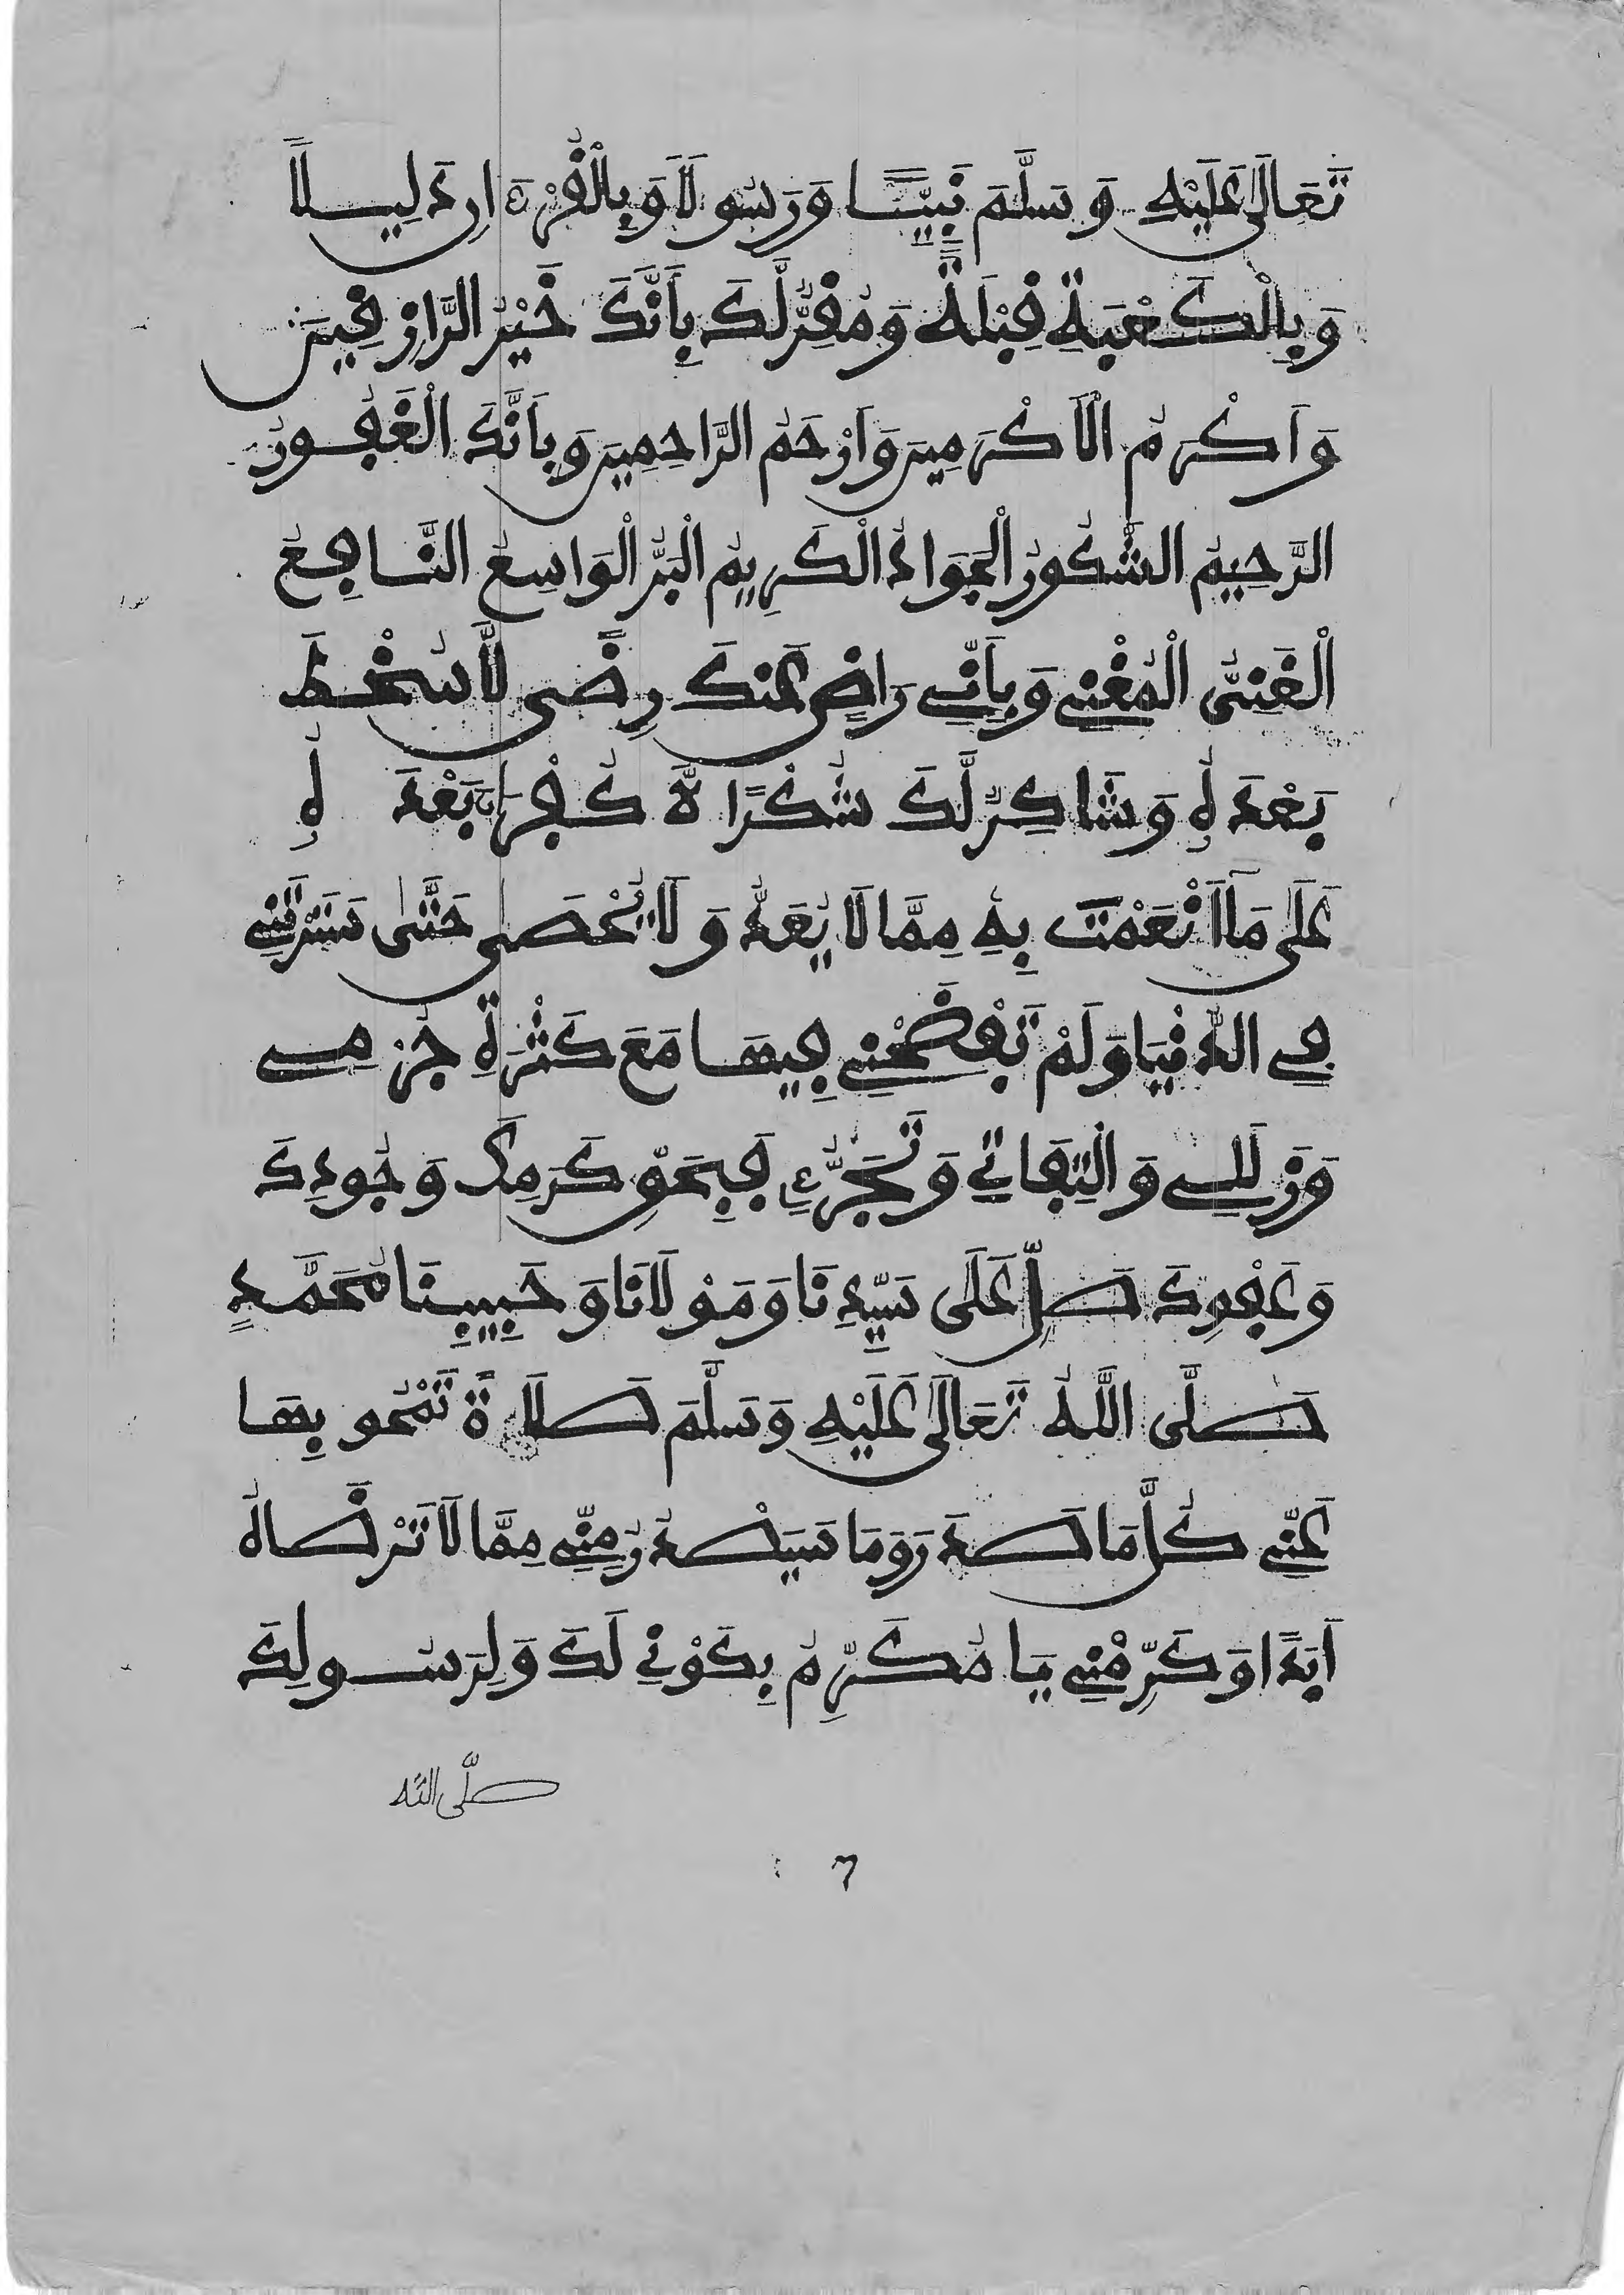 تَعَالَى عَلَيْهِ وَسَلَّمَ نَبِيًّا وَرَسُولًا وَبِالْقُرْءَانِ دَلِيلًا
وَبِالْكَعْبَةِ قِبْلَةً وَمُقِرٌّ لَّكَ بِأَنَّكَ خَيْرُ الرَّازِقِينَ
وَأَكْرَمُ الْأَكْرَمِينَ وَأَرْحَمُ الرَّاحِمِينَ وَبِأَنَّكَ الْغَفُورُ
الرَّحِيمُ الشَّكُورُ الْجَوَادُ الْكَرِيمُ الْبَرُّ الْوَاسِعُ النَّافِعُ
الْغَنِيُّ الْمُغْنِي وَبِأَنِّي رَاضٍ عَنكَ رِضًى لَّا سُخْطَ
بَعْدَهُ وَشَاكِرٌ لَّكَ شُكْرًا لَّا كُفْرَانَ بَعْدَهُ
عَلَى مَا أَنْعَمْتَ بِهِ مِمَّا لَا يُعَدُّ وَلَا يُحْصَى حَتَّى سَتَرْتَنِي
فِي الدُّنْيَا وَلَمْ تَفْضَحْنِي فِيهَا مَعَ كَثْرَةِ جُرْمِي
وَزَلَلِي وَالْتِفَاتِي وَتَجَرُّءِي فَبِحَقِّ كَرَمِكَ وَجُودِكَ
وَعَفْوِكَ صَلِّ عَلَى سَيِّدِنَا وَمَوْلَانَا وَحَبِيبِنَا مُحَمَّدٍ
صَلَّى اللَّهُ تَعَالَى عَلَيْهِ وَسَلَّمَ صَلَاةً تَمْحُو بِهَا
عَنِّي كُلَّ مَا صَدَرَ وَمَا سَيَصْدُرُ مِنِّي مِمَّا لَا تَرْضَاهُ
أَبَدًا وَكَرِّمْنِي يَا مُكَرِّمُ بِكَوْنِي لَكَ وَلِرَسُولِكَ
صَلَّى اللَّه
٦